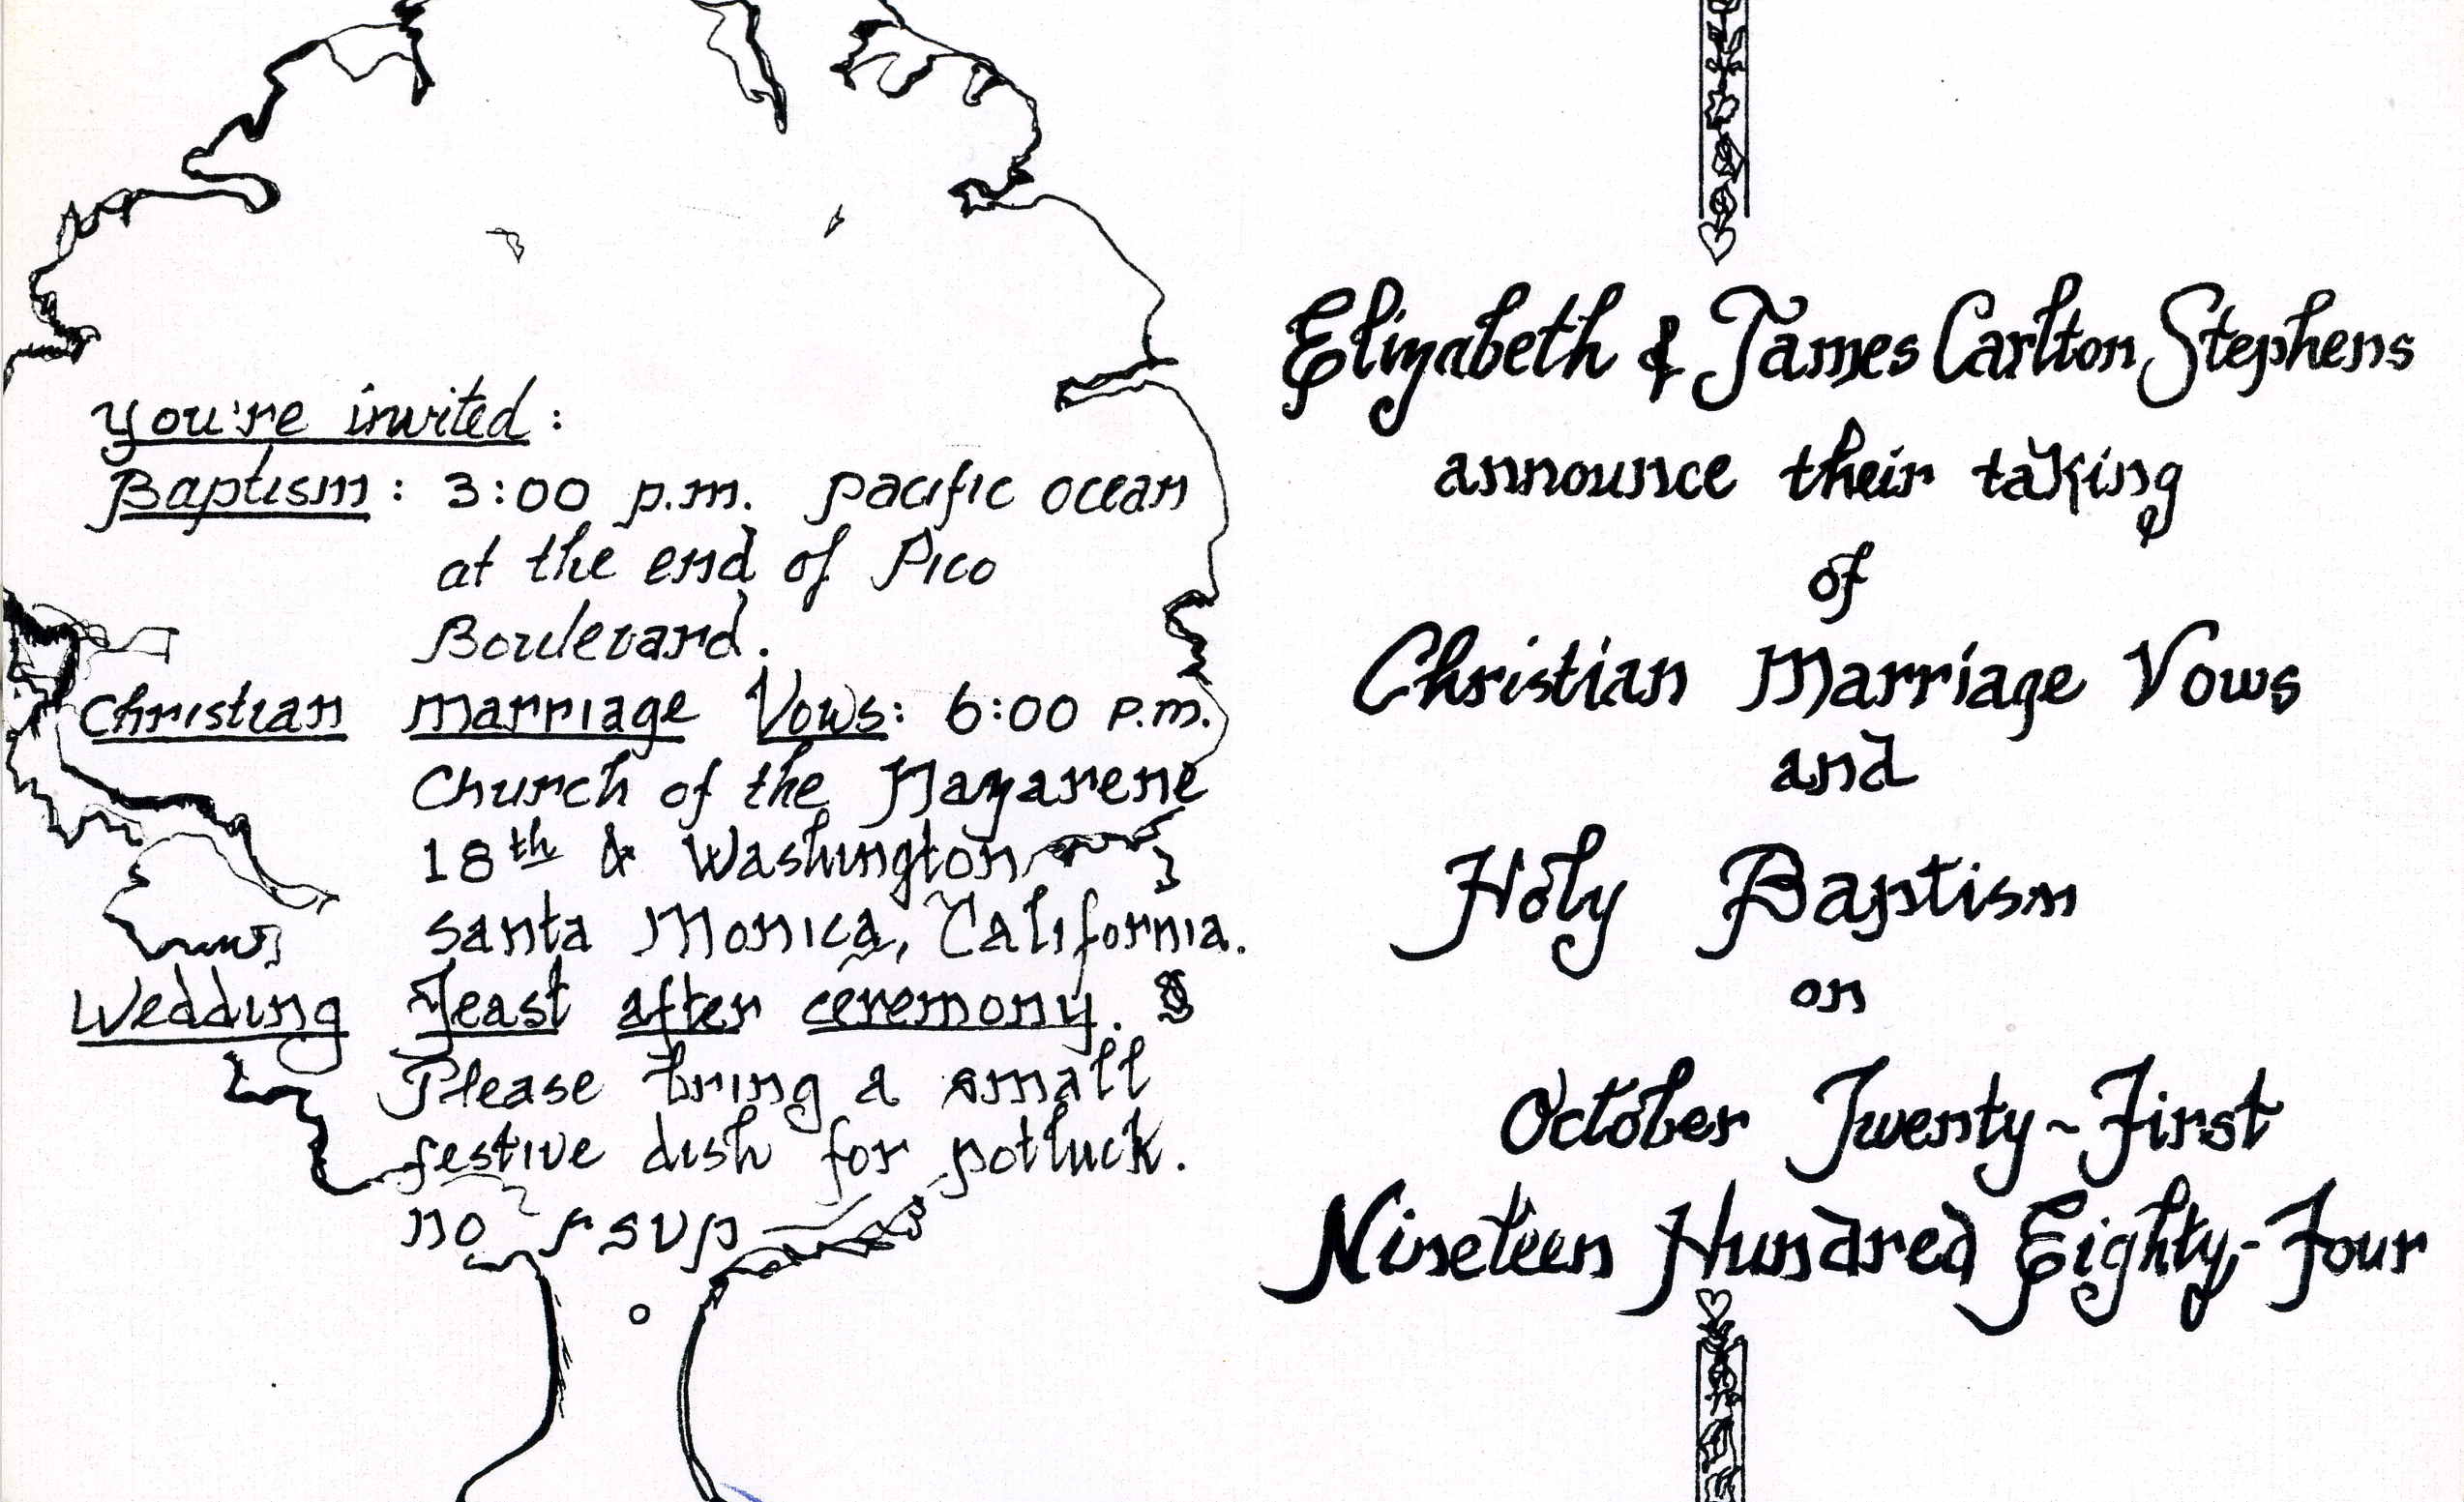 you're invited:
Baptism: 3:00 p.m. pacific ocean
at the end of Pico
Boulevard.
Christian Marriage Vows: 6:00 p.m.
Church of the Nazarene
18th & Washington
Santa Monica, California.
Wedding Feast after ceremony.
Please bring a small
festive dish for potluck.
no rsvp
Elizabeth & James Carlton Stephens
announce their taking
of
Christian Marriage Vows
and
Holy Baptism
on
October Twenty-First
Nineteen Hundred Eighty-Four